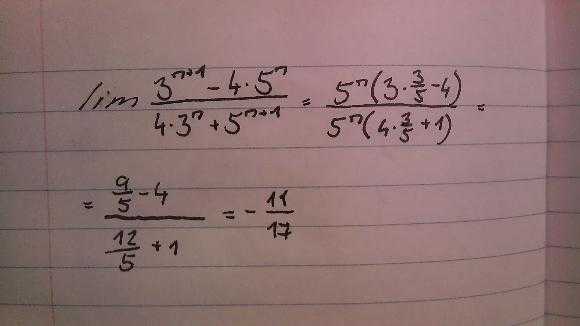 lim (3^(n+1) - 4·5^n)/(4·3^n + 5^(n+1)) = (5^n(3·3/5 - 4))/(5^n(4·3/5 + 1)) =
= (9/5 - 4)/(12/5 + 1) = - 11/17